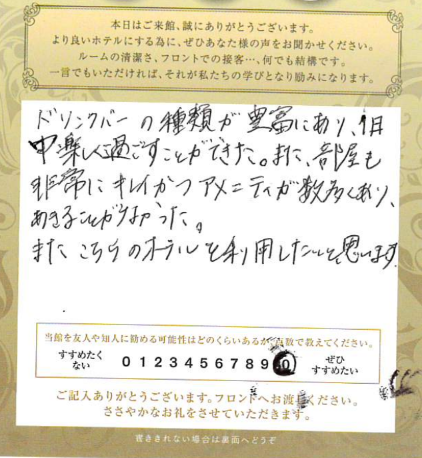 本日はご来館、誠にありがとうございます。
より良いホテルにする為に、ぜひあなた様の声をお聞かせください。
ルームの清潔さ、フロントでの接客…、何でも結構です。
一言でもいただければ、それが私たちの学びとなり励みになります。
ドリンクバーの種類が豊富にあり、1日
中楽しく過ごすことができた。また、部屋も
非常にキレイかつアメニティが数多くあり、
あきることがなかった。
またこちらのホテルを利用したいと思います
当館を友人や知人に勧める可能性はどのくらいあるか、点数で教えてください。
すすめたくない 0 1 2 3 4 5 6 7 8 9 10 ぜひすすめたい
ご記入ありがとうございます。フロントへお渡しください。
ささやかなお礼をさせていただきます。
書ききれない場合は裏面へどうぞ